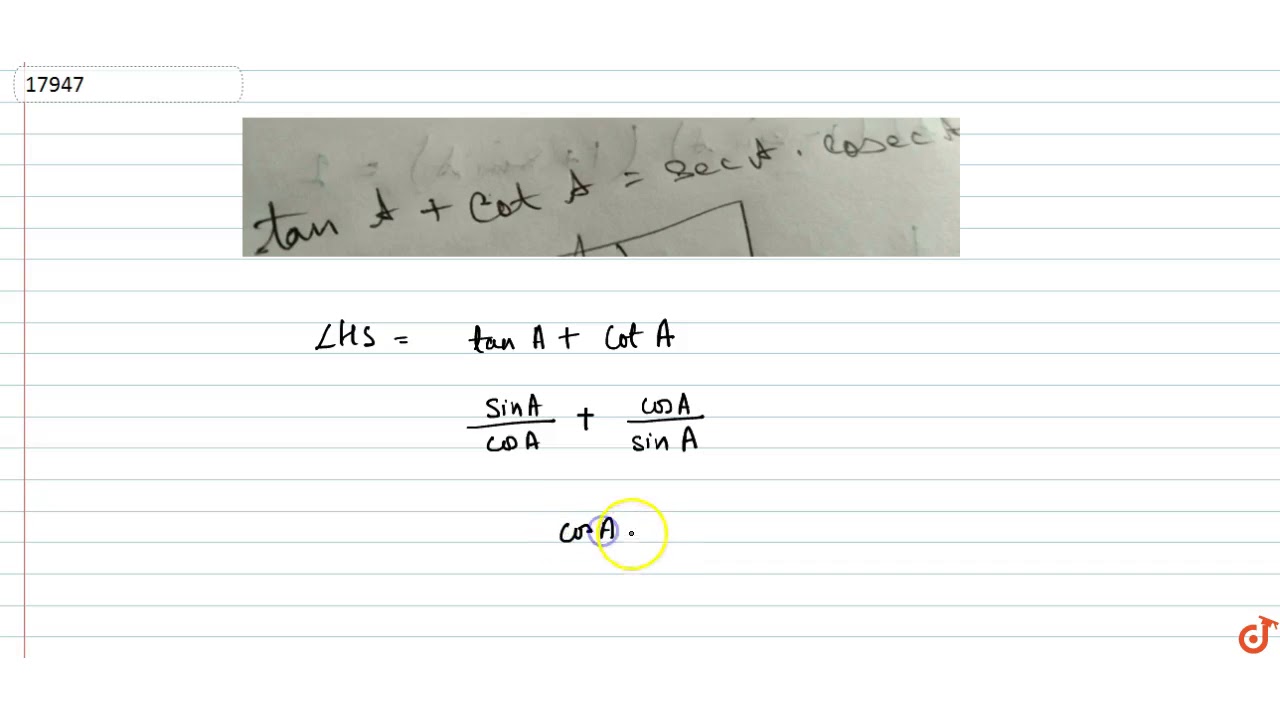 17947
tan A + cot A = sec A . cosec A
LHS = tan A + cot A
sin A / cos A + cos A / sin A
cos A .